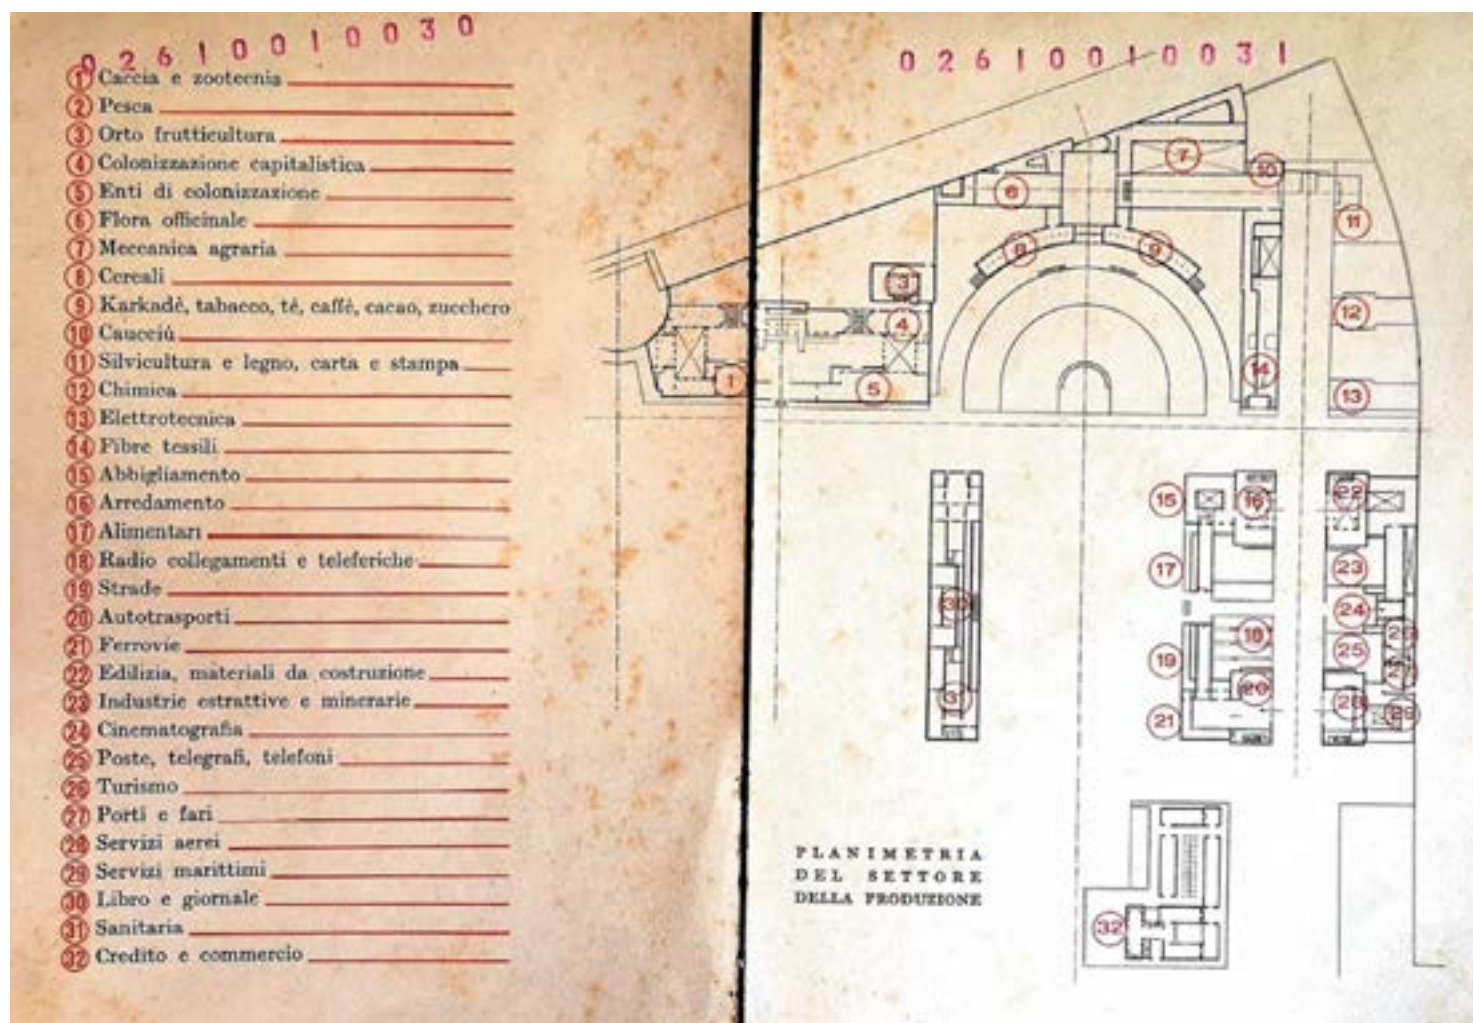 02610010030
1 Caccia e zootecnia
2 Pesca
3 Orto frutticultura
4 Colonizzazione capitalistica
5 Enti di colonizzazione
6 Flora officinale
7 Meccanica agraria
8 Cereali
9 Karkadè, tabacco, tè, caffè, cacao, zucchero
10 Caucciù
11 Silvicultura e legno, carta e stampa
12 Chimica
13 Elettrotecnica
14 Fibre tessili
15 Abbigliamento
16 Arredamento
17 Alimentari
18 Radio collegamenti e teleferiche
19 Strade
20 Autotrasporti
21 Ferrovie
22 Edilizia, materiali da costruzione
23 Industrie estrattive e minerarie
24 Cinematografia
25 Poste, telegrafi, telefoni
26 Turismo
27 Porti e fari
28 Servizi aerei
29 Servizi marittimi
30 Libro e giornale
31 Sanitaria
32 Credito e commercio
02610010031
7
10
6
11
8
9
3
12
4
14
1
5
13
15
16
22
17
23
30
24
18
25
19
20
28
29
31
21
PLANIMETRIA
DEL SETTORE
DELLA PRODUZIONE
32